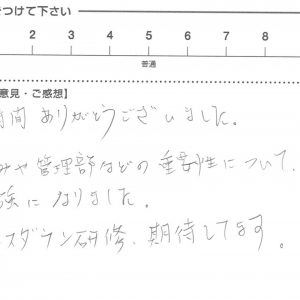 つけて下さい
2 3 4 5 6 7 8
普通
意見・ご感想】
間ありがとうございました。
みや管理部などの重要性について、
験になりました。
スダウン研修、期待してます。